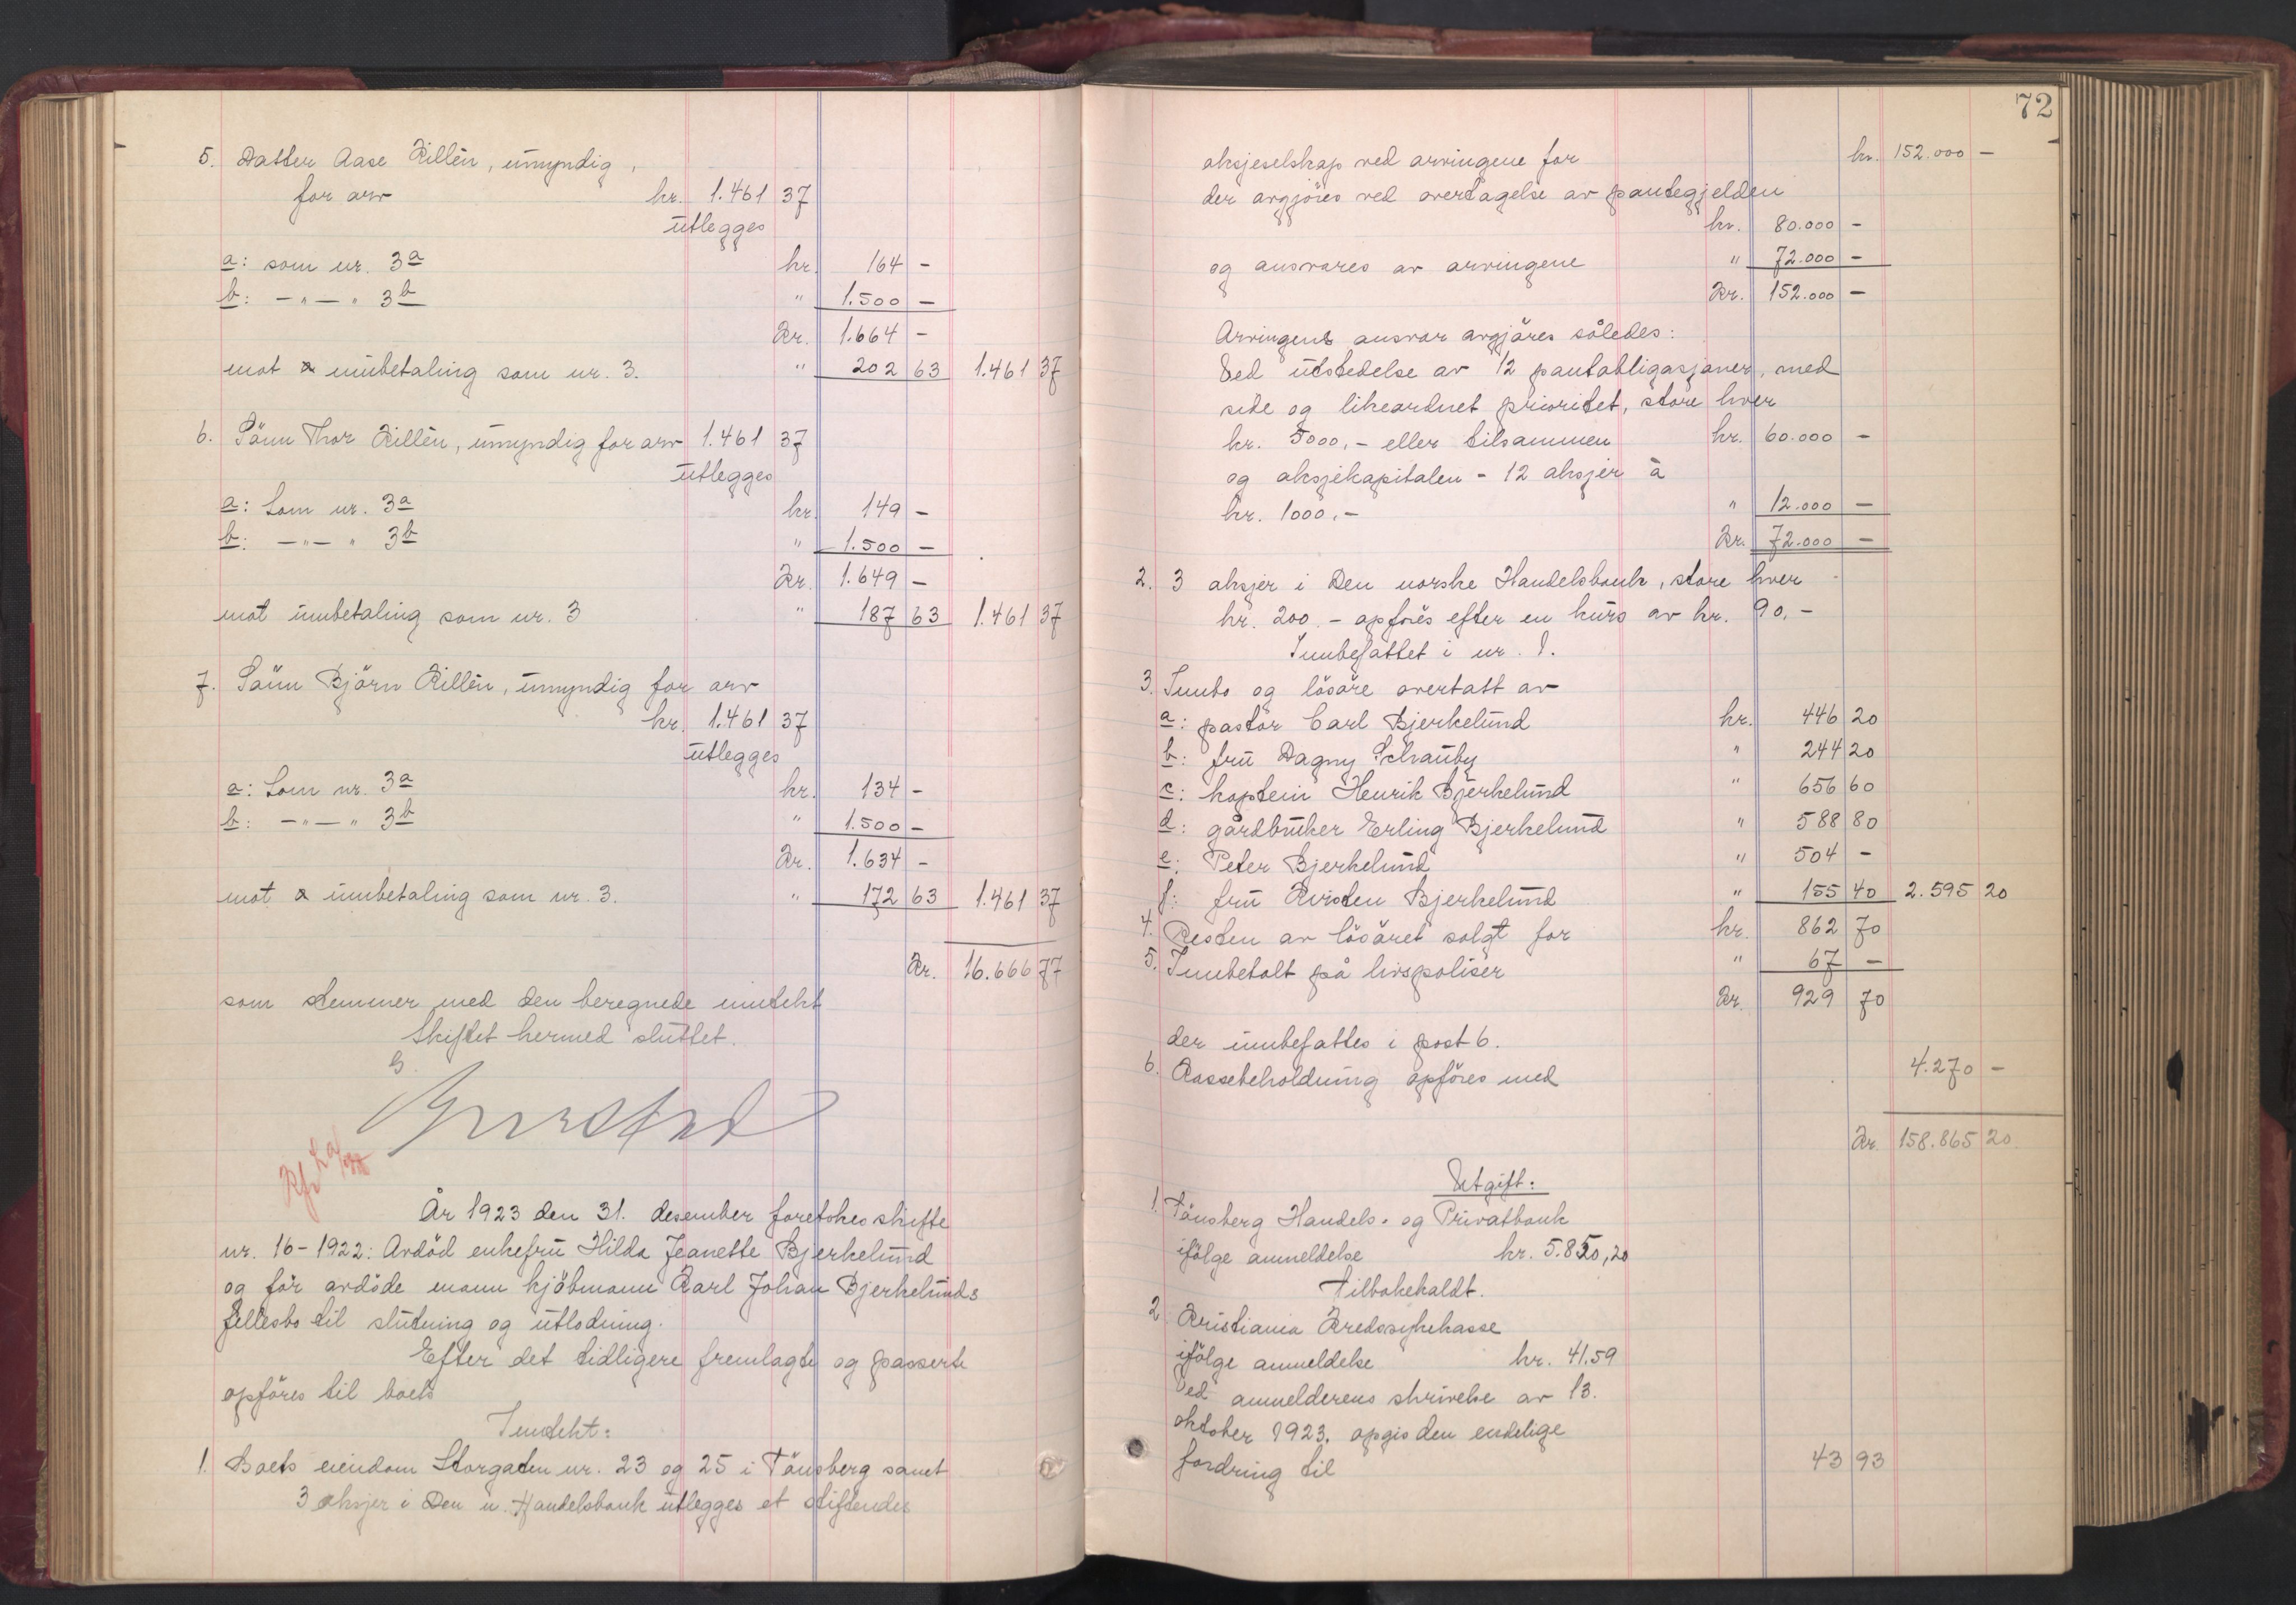 5. Datter Aase Killén, umyndig,
for arv kr. 1.461 37
utlegges
a: som nr. 3a kr. 164 -
b: -„- „ 3b „ 1.500 -
Kr. 1.664 -
mot innbetaling som nr. 3. „ 202 63 1.461 37
6. Sönn Thor Killén, umyndig for arv 1.461 37
utlegges
a: Som nr. 3a kr. 149 -
b: -„- „ 3b „ 1.500 -
Kr. 1.649 -
mot innbetaling som nr. 3 „ 187 63 1.461 37
7. Sönn Björn Killén, umyndig for arv
kr. 1.461 37
utlegges
a: Som nr. 3a kr. 134 -
b: -„- „ 3b „ 1.500 -
Kr. 1.634 -
mot innbetaling som nr. 3. „ 172 63 1.461 37
Kr. 16.666 77
som stemmer med den beregnede inntekt
Skiftet hermed sluttet.
År 1923 den 31. desember foretokes skifte
nr. 16-1922: Avdöd enkefru Hilda Jeanette Bjerkelund
og för avdöde mann kjöbmann Karl Johan Bjerkelunds
fellesbo til slutning og utlodning.
Efter det tidligere fremlagte og passerte
opföres til boets
Inntekt:
1. Boets eiendom Storgaten nr. 23 og 25 i Tönsberg samt
3 aksjer i Den n. Handelsbank utlegges et stiftendes
72
aksjeselskap ved arvingene for kr. 152.000 -
der avgjöres ved overtagelse av pantegjelden
kr. 80.000 -
og ansvares av arvingene „ 72.000 -
Kr. 152.000 -
Arvingens ansvar avgjöres således:
Ved utstedelse av 12 pantobligasjoner, med
side og likeordnet prioritet, store hver
kr. 5000,- eller tilsammen kr. 60.000 -
og aksjekapitalen - 12 aksjer à
kr. 1000,- „ 12.000 -
Kr. 72.000 -
2. 3 aksjer i Den norske Handelsbank, store hver
kr. 200.- opföres efter en kurs av kr. 90,-
Innbefattet i nr. 1.
3. Innbo og lösöre overtatt av
a: pastor Carl Bjerkelund kr. 446 20
b: fru Dagny Schauby „ 244 20
c: kaptein Henrik Bjerkelund „ 656 60
d: gårdbruker Erling Bjerkelund „ 588 80
e: Peter Bjerkelund „ 504 -
f: fru Kirsten Bjerkelund „ 155 40 2.595 20
4. Resten av lösöret solgt for kr. 862 70
5. Innbetalt på livspoliser „ 67 -
Kr. 929 70
der innbefattes i post 6.
6. Kassebeholdning opföres med 4.270 -
Kr. 158.865 20
Utgift:
1. Tönsberg Handels- og Privatbank
ifölge anmeldelse kr. 5.850,20
tilbakekaldt.
2. Kristiania Kredssykekasse
ifölge anmeldelse kr. 41.59
Ved anmelderens skrivelse av 13.
oktober 1923. opgis den endelige
fordring til 43 93